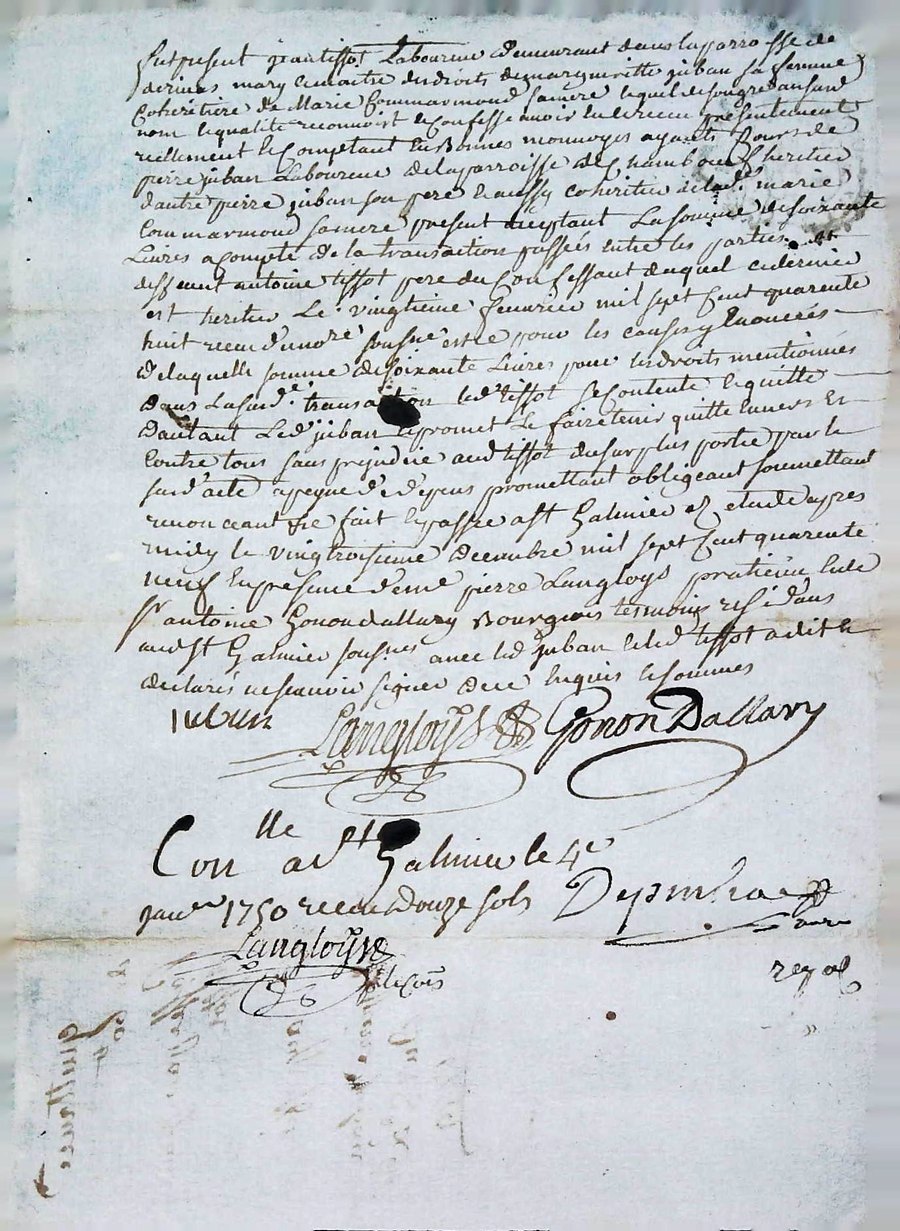 fut present jean tissot Laboureur demeurant dans la parroisse de
derivas mary et maitre des droits de margueritte juban sa femme
Coheritiere de Marie Commarmond sa mere lequel de son gré en sond
nom et qualité reconnoist et Confesse avoir eu et receu presentement
reellement et Comptant en Bonnes monnoyes ayants Cours de
pierre juban Laboureur de la parroisse de Chamboeuf heritier
d'autre pierre juban son pere et aussy coheritier de lad.e marie
Commarmond sa mere present acceptant La somme de soixante
Livres a Compte de la transaction passées entre les parties et
deffeunt antoine tissot pere du Confessant duquel ce dernier
est heritier Le vingtieme feuvrier mil sept Cent quarente
huit receu du no.re sousné et ce pour les causes y Enoncées
de laquelle somme de soixante Livres pour les droits mentionnés
dans La susd.e transaction led tissot se Contente et quitte
d'autant Led juban et promet Le faire tenir quitte envers et
Contre tous sans prejudice aud tissot du surplus portée par le
susd acte a peyne d d epens promettant obligeant soummettant
renonceant &c fait et passé a st Galmier ez etude apres
midy le vingtroisieme decembre mil sept Cent quarente
neuf En presence de me pierre Langloys praticien et de
sr antoine Gonon dallary Bourgeois temoins residans
aud st Galmier sousnes avec led juban et led tissot a dit et
declarés ne scavoir signer de ce Enquis et sommes
juban Langloys Gonon Dallary
Conlle a st Galmier le 4e
janer 1750 receu douze sols
Langloys
royal
quittance